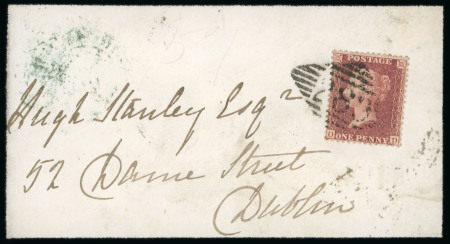 POSTAGE
ONE PENNY
Hugh Stanley Esqr
52 Dame Street
Dublin